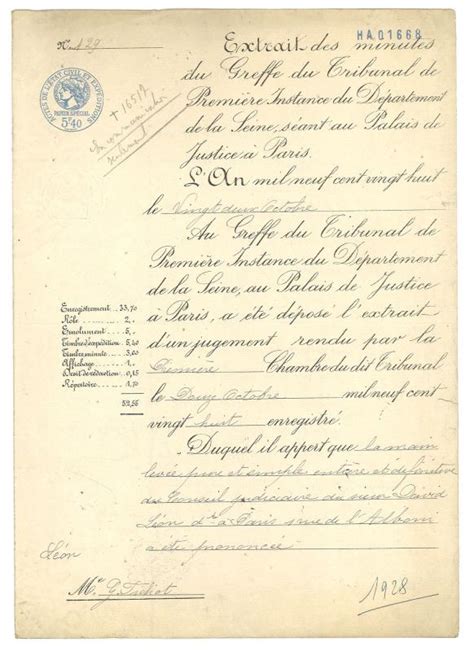 N. 129
HA01668
Extrait des minutes
du Greffe du Tribunal de
Première Instance du Département
de la Seine, séant au Palais de
Justice à Paris.
ACTES DE L'ÉTAT CIVIL ET EXPÉDITIONS
PAPIER SPÉCIAL
5F40
L'An mil neuf cent vingt huit
le Vingt deux Octobre
Au Greffe du Tribunal de
Première Instance du Département
de la Seine, au Palais de Justice
à Paris, a été déposé l'extrait
d'un jugement rendu par la
Première Chambre du dit Tribunal
le Douze Octobre mil neuf cent
vingt huit enregistré.
Enregistrement 33,70
Rôle 2,
Emolument 5,
Timbre d'expédition 5,40
Timbre minute 3,60
Affichage 1,
Droit de rédaction 0,15
Répertoire 1,70
52,55
Duquel il appert que la main
levée pure et simple, entière et définitive
du Conseil judiciaire du sieur David
Léon dt à Paris rue de l'Alboni
a été prononcée
Léon
Me G.
1928